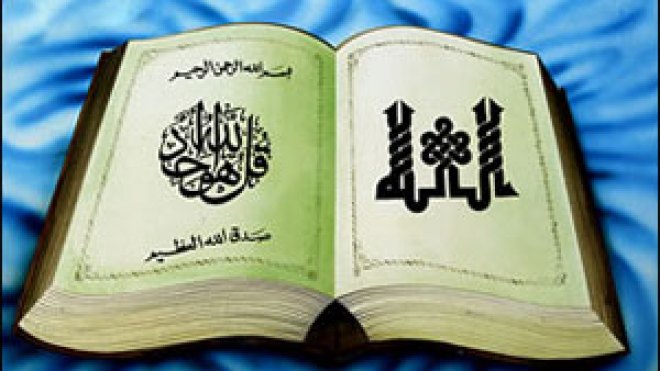 الله
بسم الله الرحمن الرحيم
قل هو الله احد
صدق الله العظيم